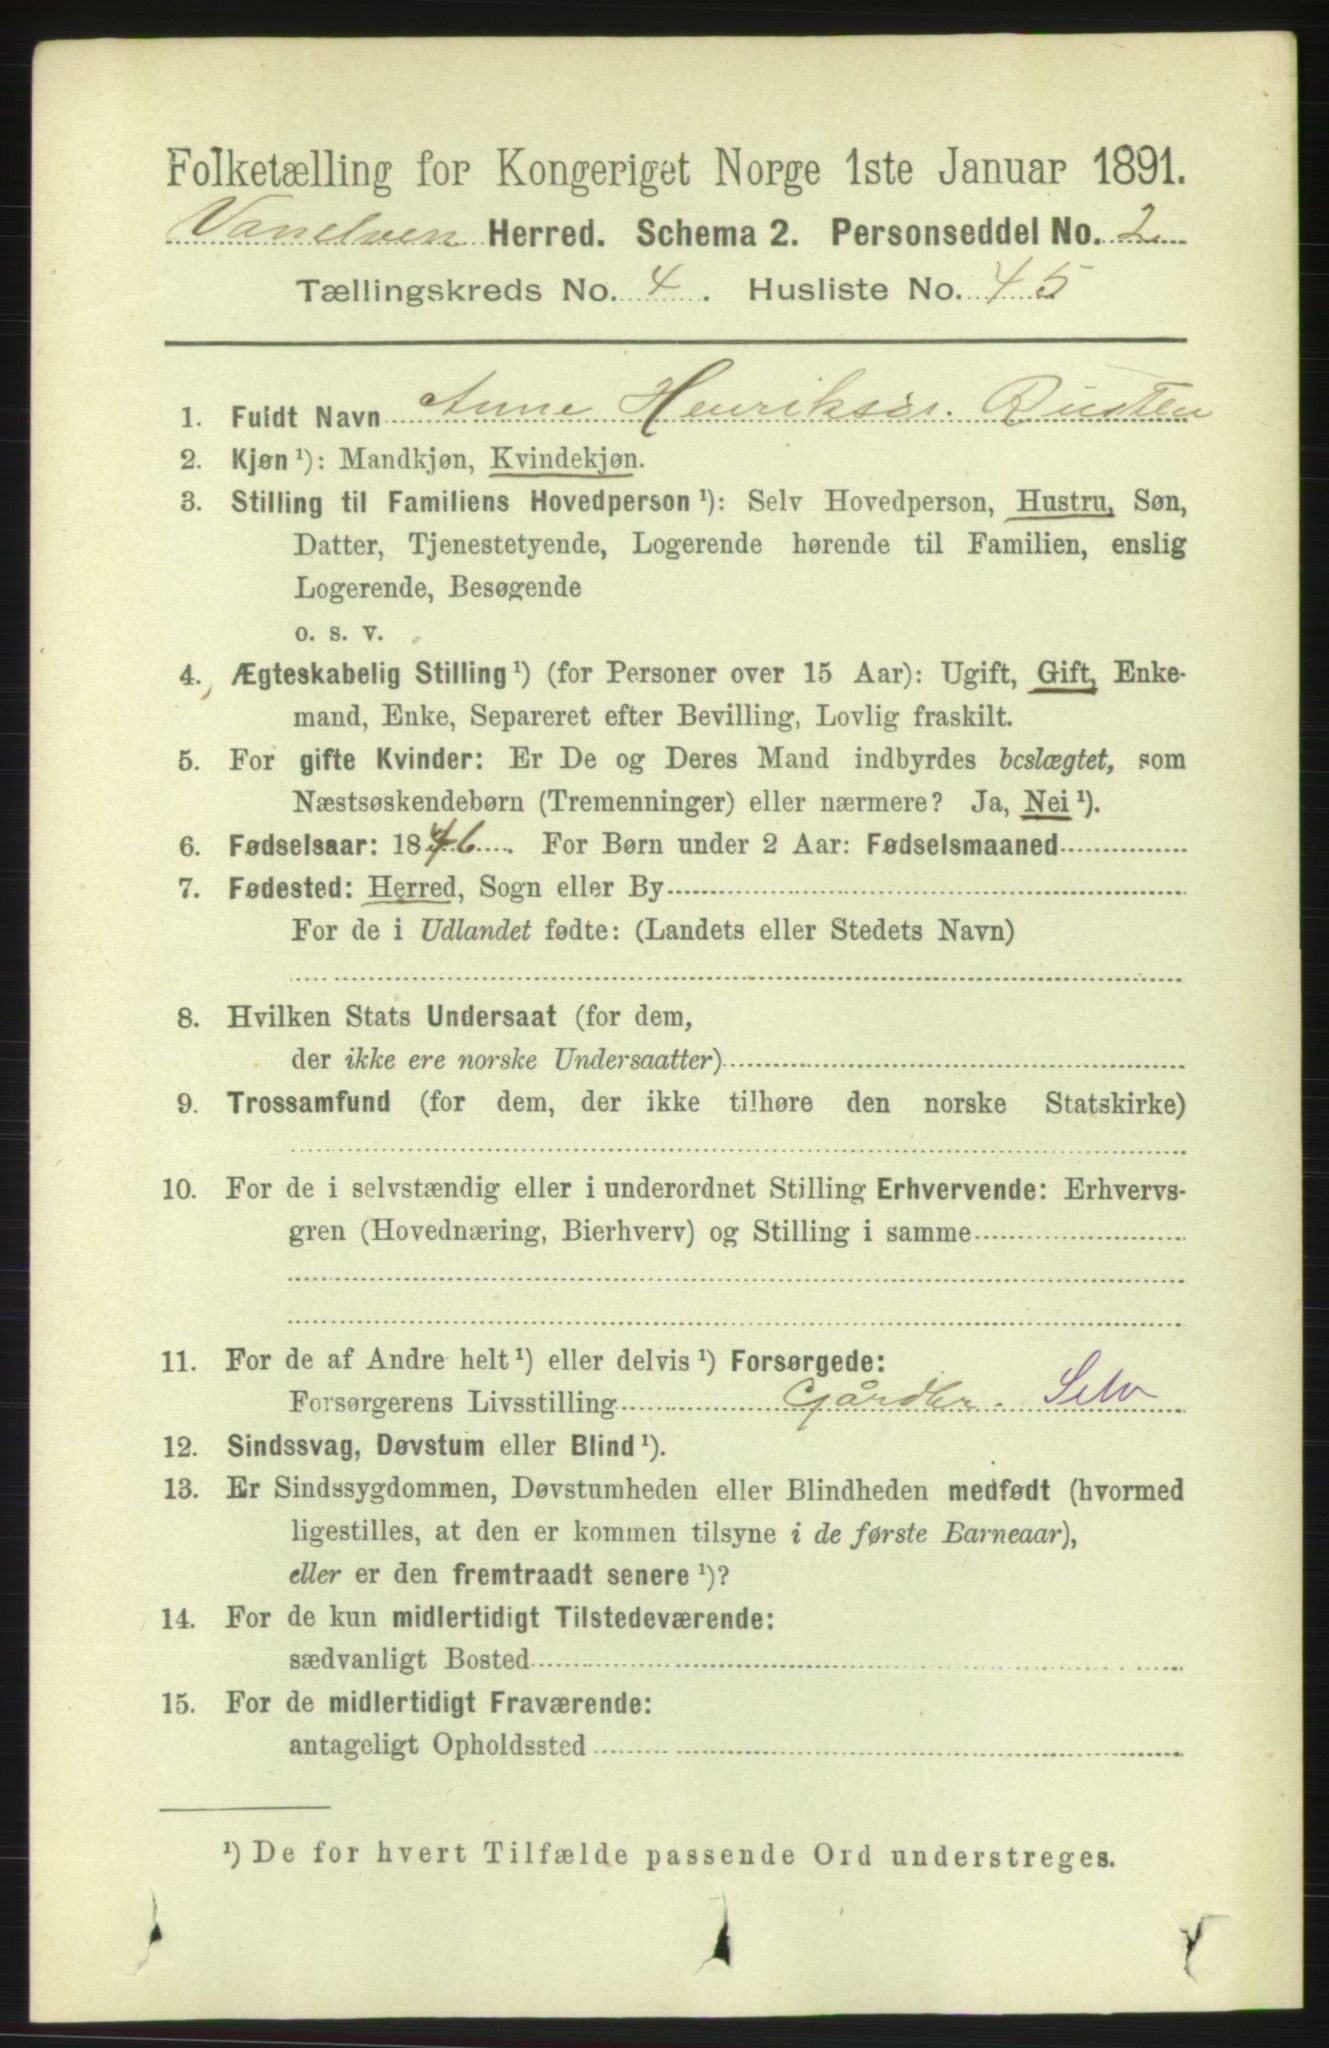 Folketælling for Kongeriget Norge 1ste Januar 1891.
Vanelven Herred. Schema 2. Personseddel No. 2
Tællingskreds No. 4. Husliste No. 45
1. Fuldt Navn Anne Henriksdr. Rusten
2. Kjøn ¹): Mandkjøn, Kvindekjøn.
3. Stilling til Familiens Hovedperson ¹): Selv Hovedperson, Hustru, Søn,
Datter, Tjenestetyende, Logerende hørende til Familien, enslig
Logerende, Besøgende
o. s. v.
4. Ægteskabelig Stilling ¹) (for Personer over 15 Aar): Ugift, Gift, Enke-
mand, Enke, Separeret efter Bevilling, Lovlig fraskilt.
5. For gifte Kvinder: Er De og Deres Mand indbyrdes beslægtet, som
Næstsøskendebørn (Tremenninger) eller nærmere? Ja, Nei ¹).
6. Fødselsaar: 1846. For Børn under 2 Aar: Fødselsmaaned
7. Fødested: Herred, Sogn eller By
For de i Udlandet fødte: (Landets eller Stedets Navn)
8. Hvilken Stats Undersaat (for dem,
der ikke ere norske Undersaatter)
9. Trossamfund (for dem, der ikke tilhøre den norske Statskirke)
10. For de i selvstændig eller i underordnet Stilling Erhvervende: Erhvervs-
gren (Hovednæring, Bierhverv) og Stilling i samme
11. For de af Andre helt ¹) eller delvis ¹) Forsørgede:
Forsørgerens Livsstilling Gårdbr. Selv
12. Sindssvag, Døvstum eller Blind ¹).
13. Er Sindssygdommen, Døvstumheden eller Blindheden medfødt (hvormed
ligestilles, at den er kommen tilsyne i de første Barneaar),
eller er den fremtraadt senere ¹)?
14. For de kun midlertidigt Tilstedeværende:
sædvanligt Bosted
15. For de midlertidigt Fraværende:
antageligt Opholdssted
¹) De for hvert Tilfælde passende Ord understreges.